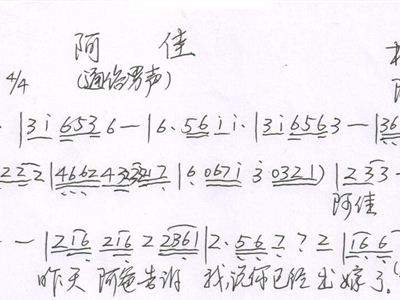 阿佳
4/4 (通俗男声)
· |3 i 6 5 3 6 — |6 · 5 6 i i · |3 i 6 5 6 3 — |3 6
2 2 2 2 |4 6 6 2 4 3 2 3 2 1 7 |6 0 6 7 i 3 0 3 2 1) |2 3 3 —
阿佳
· — |2 1 6 2 1 6 2 2 3 6 1 |2 · 5 6 7 ? 2 |1 6 6
昨天 阿爸告诉 我,说你已经出嫁了。